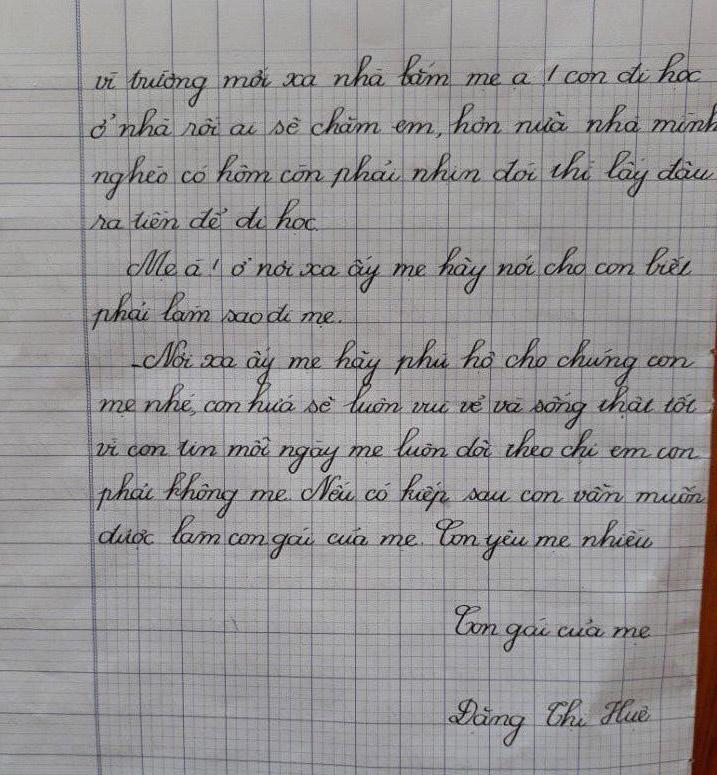 vì trường mới xa nhà lắm mẹ ạ! con đi học
ở nhà rồi ai sẽ chăm em, hơn nữa nhà mình
nghèo có hôm còn phải nhịn đói thì lấy đâu
ra tiền để đi học.
Mẹ à! ở nơi xa ấy mẹ hãy nói cho con biết
phải làm sao đi mẹ.
-Nơi xa ấy mẹ hãy phù hộ cho chúng con
mẹ nhé, con hứa sẽ luôn vui vẻ và sống thật tốt
vì con tin mỗi ngày mẹ luôn dõi theo chị em con
phải không mẹ. Nếu có kiếp sau con vẫn muốn
được làm con gái của mẹ. Con yêu mẹ nhiều
Con gái của mẹ
Đặng Thị Huê